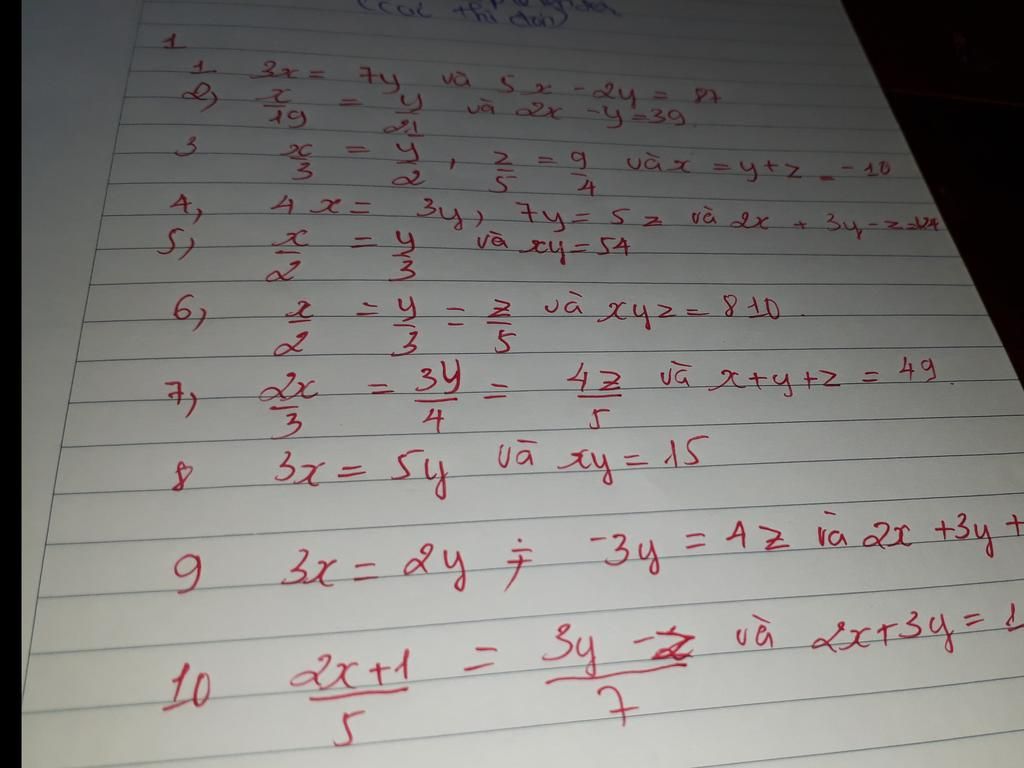 (các thi đơn)
1
1 3x = 7y và 5x - 2y = 87
2, x/19 = y/21 và 2x - y = 39
3 x/3 = y/2 , z/5 = 9/4 và x = y + z = -10
4, 4x = 3y, 7y = 5z và 2x + 3y - z =
5, x/2 = y/3 và xy = 54
6, x/2 = y/3 = z/5 và xyz = 810.
7, 2x/3 = 3y/4 = 4z/5 và x + y + z = 49.
8 3x = 5y và xy = 15
9 3x = 2y ; -3y = 4z và 2x + 3y +
10 2x+1/5 = 3y - 2/7 và 2x + 3y = 1